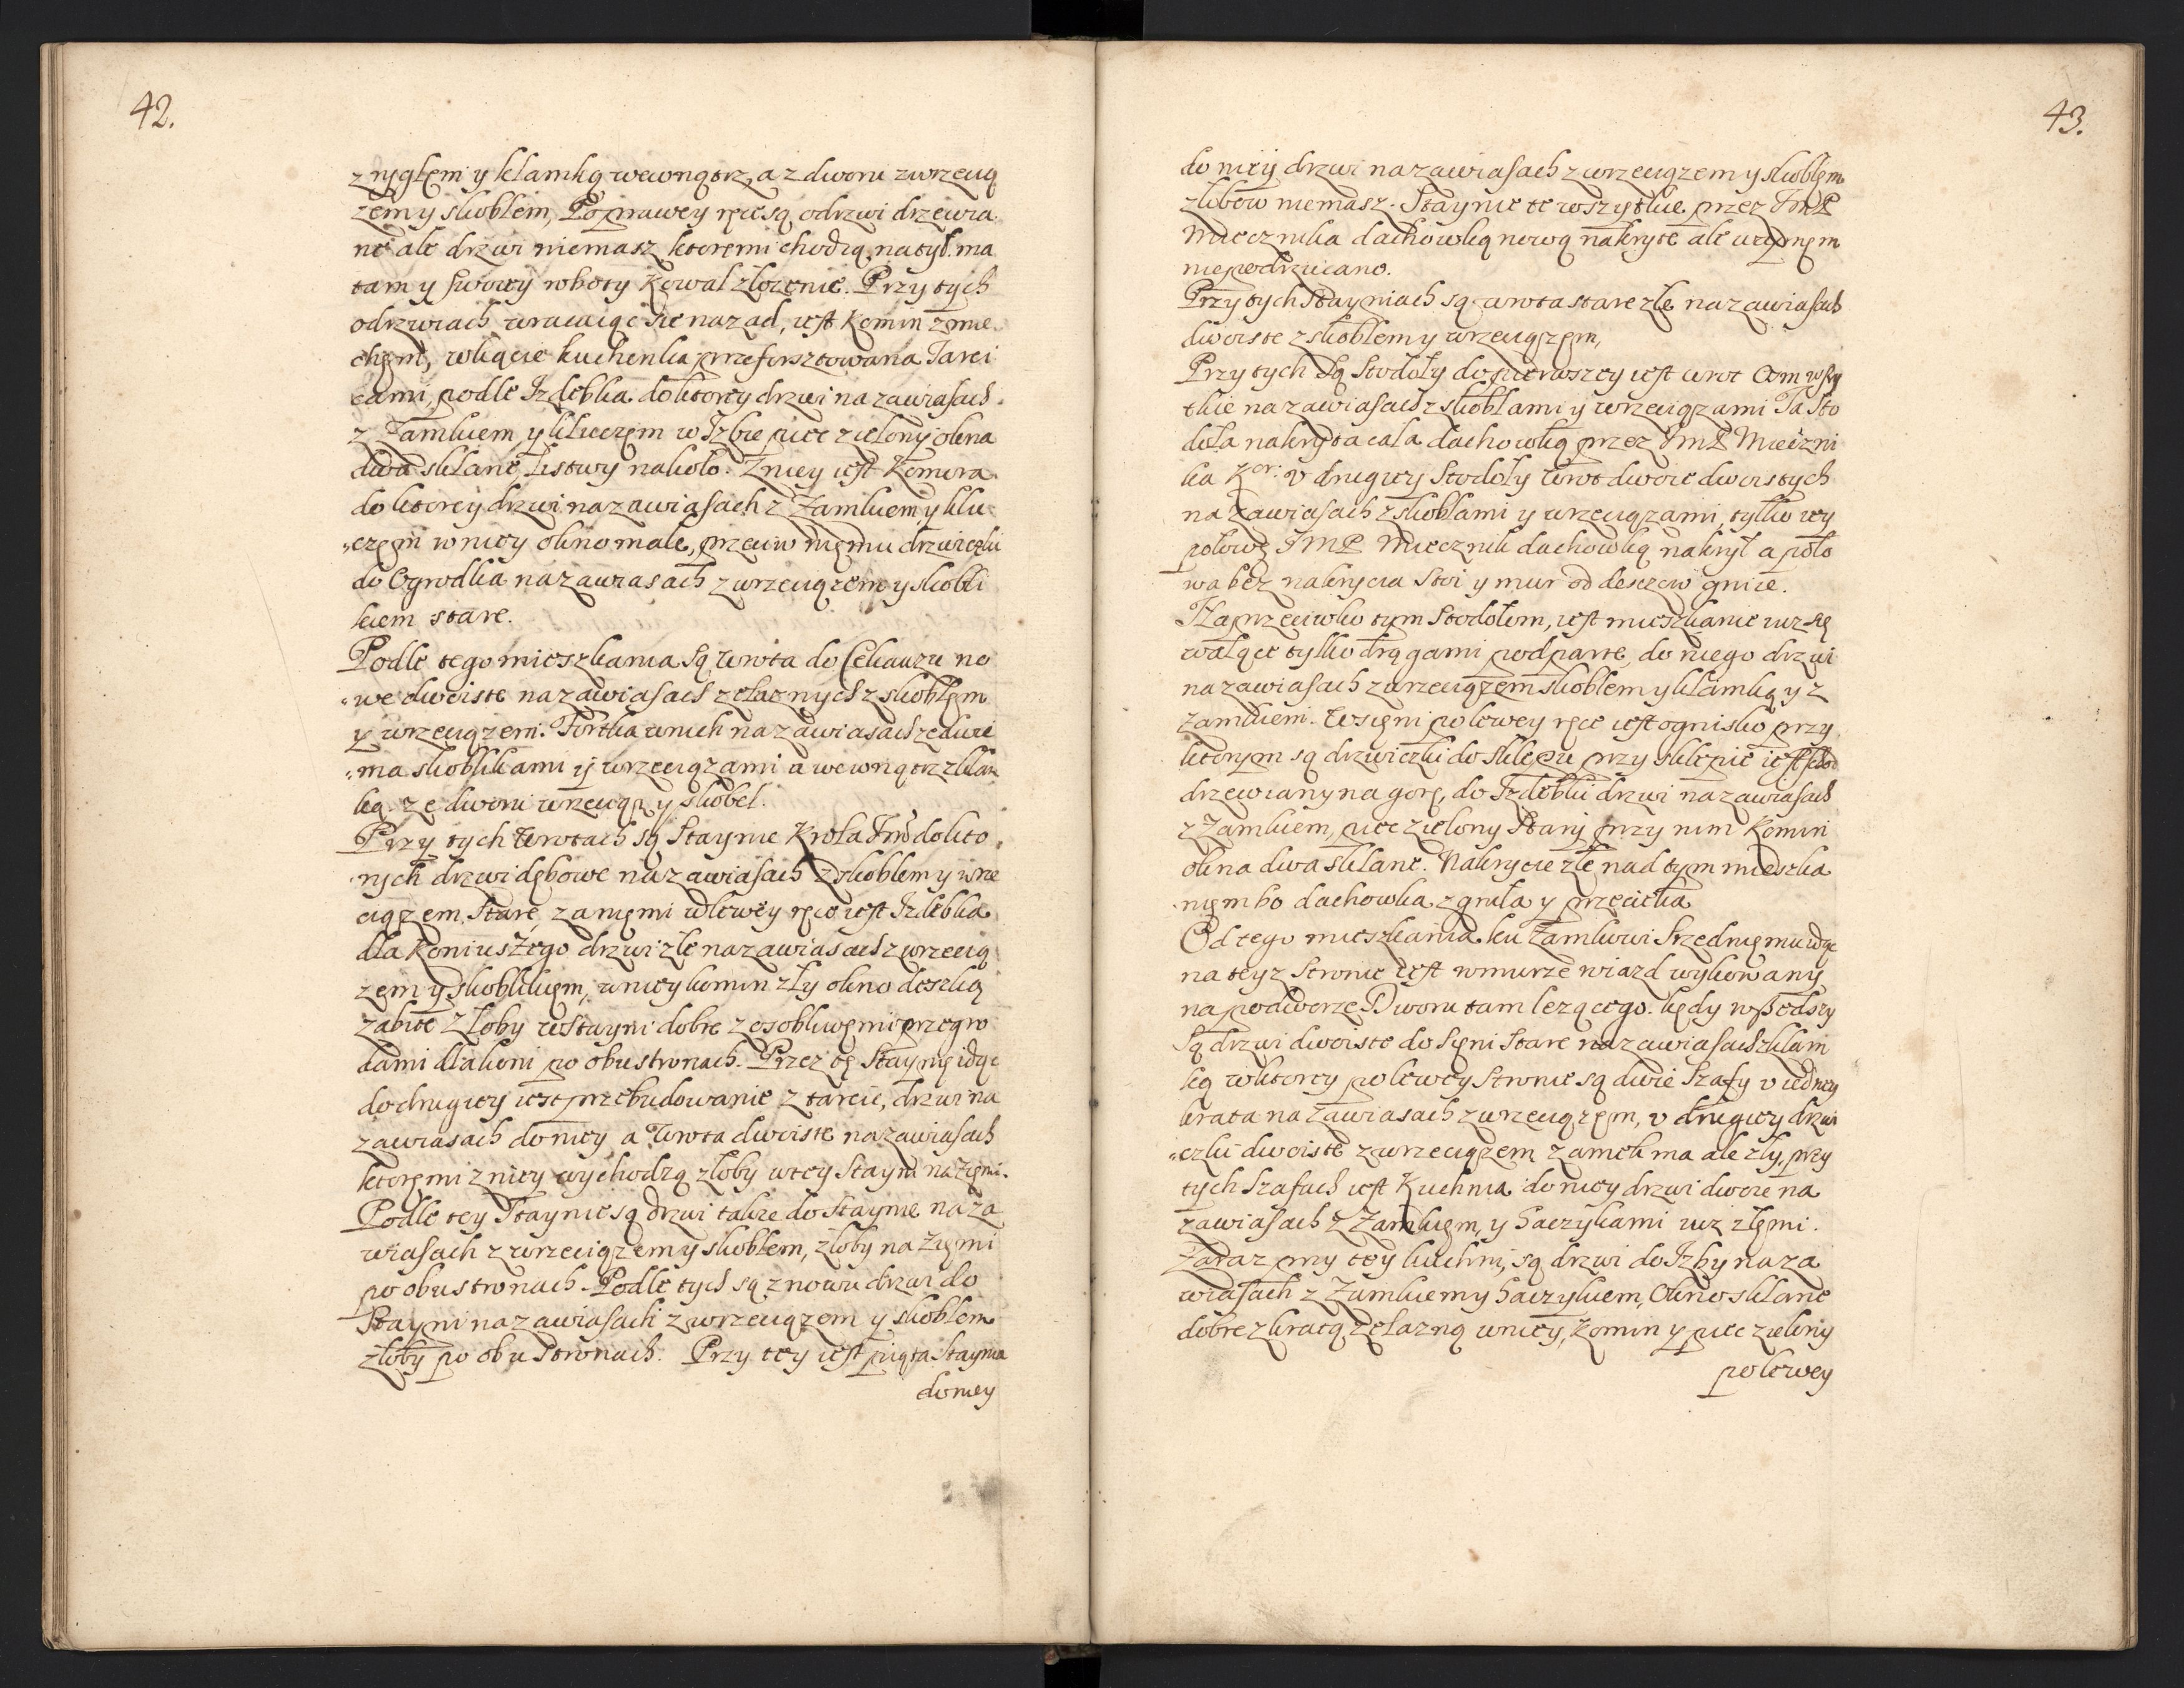 42.
z ryglem y klamką wewnątrz, a z dworu z wrzecią
zem y skoblem, Po prawey ręce są odrzwi drzewia
ne ale drzwi niemasz ktoremi chodzą na tył. ma
tam y swoiey roboty Kowal złozenie. Przy tych
odrzwiach wracaiąc sie nazad, iest Komin z mie
chem, w kącie kuchenka przeforsztowana Tarci
cami, podle Izdebka do ktorey drzwi na zawiasach
z Zamkiem y kluczem w Izbie piec zielony okna
dwa sklane, Listwy nakoło. Z niey iest Komora
do ktorey drzwi na zawiasach z Zamkiem y klu
„czem w niey okno małe, przeciw niemu drzwiczki
do Ogrodka na zawiasach z wrzeciązem y skobli
kiem stare.
Podle tego mieszkania są Wrota do Cekauzu no
„we dwoiste na zawiasach zelaznych z skoblem
y wrzeciązem. Fortka w nich na zawiasach ze dwie
„ma skoblikami y wrzeciązami a wewnątrz z klam
ką ze dworu wrzeciąz y skobel.
Przy tych Wrotach są Staynie Krola Jmści do kto
rych drzwi dębowe na zawiasach z skoblem y wrze
ciązem, Stare, za niemi w lewey ręce iest Izdebka
dla Koniuszego drzwi złe na zawiasach z wrzecią
zem y skoblikiem, w niey komin zły okno deszką
zabite Złoby w Stayni dobre z osobliwemi przegro
dami dla koni po obu stronach. Przez tę Staynię idąc
do drugiey iest przebudowanie z tarcic, drzwi na
zawiasach do niey a Wrota dwoiste na zawiasach
ktoremi z niey wychodzą złoby w tey Stayni na Ziemi.
Podle tey Staynie są drzwi takze do Staynie na za
wiasach z wrzeciązem y skoblem, złoby na Ziemi
po obu stronach. Podle tych są znowu drzwi do
Stayni na zawiasach z wrzeciązem y skoblem
złoby po obu Stronach. Przy tey iest piąta Staynia
do niey
43.
do niey drzwi na zawiasach z wrzeciązem y skoblem
złobow niemasz. Staynie te wszytkie przez JmP
Miecznika dachowką nową nakryte ale wapnem
niepodrzucano.
Przy tych Stayniach są wrota stare złe na zawiasach
dwoiste z skoblem y wrzeciązem,
Przy tych Są Stodoły do pierwszey iest wrot Ośm wszy
tkie na zawiasach z skoblami y wrzeciązami Ta Sto
doła nakryta cała dachowką przez JmP Mieczni
ka Kor: v drugiey Stodoły Wrot dwoie dwoistych
na zawiasach z skoblami y wrzeciązami, tylko iey
połowę JMP Miecznik dachowką nakrył a poło
wa bez nakrycia Stoi y mur od deszczow gnije.
Naprzeciwko tym Stodołom, iest mieszkanie iuz się
walące tylko drągami podparte, do niego drzwi
na zawiasach z wrzeciązem skoblem y klamką y z
zamkiem. W sieni po lewey ręce iest ognisko przy
ktorym są drzwiczki do sklepu przy sklepie iest schod
drzewiany na gorę, do Izdebki drzwi na zawiasach
z Zamkiem, piec zielony Stary przy nim Komin
okna dwa sklane. Nakrycie złe nad tym mieszka
niem bo dachowka zgniła y przecieka
Od tego mieszkania ku Zamkowi Srzedniemu idąc
na teyz Stronie iest w murze wiazd wykowany
na podworze Dworu tam lezącego. kędy wszedszy
Są drzwi dwoiste do Sieni Stare na zawiasach z klam
ką w ktorey po lewey stronie są dwie Szafy v iedney
krata na zawiasach z wrzeciązem, v drugiey drzwi
„czki dwoiste z wrzeciązem zamek ma ale zły, przy
tych Szafach iest Kuchnia do niey drzwi dwoie na
zawiasach z Zamkiem, y haczykami iuz złemi.
Zaraz przy tey kuchni, są drzwi do Izby na za
wiasach z Zamkiem y haczykiem, Okno sklane
dobre z kratą zelazną w niey, Komin y piec zielony
po lewey